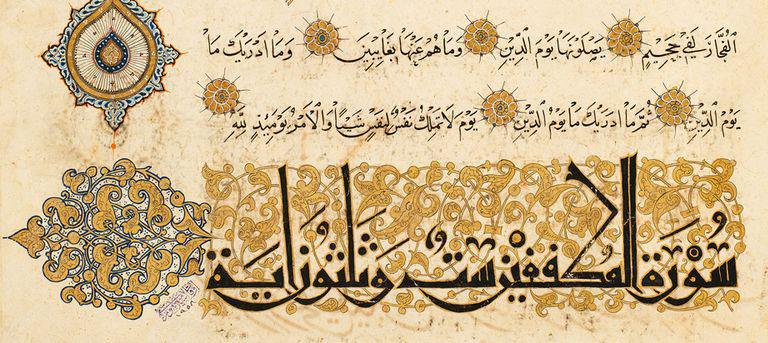 الفُجَّارَ لَفِي جَحِيمٍ يَصْلَوْنَهَا يَوْمَ الدِّينِ وَمَا هُمْ عَنْهَا بِغَائِبِينَ وَمَا أَدْرَيكَ مَا
يَوْمُ الدِّينِ ثُمَّ مَا أَدْرَيكَ مَا يَوْمُ الدِّينِ يَوْمَ لَا تَمْلِكُ نَفْسٌ لِنَفْسٍ شَيْئًا وَالْأَمْرُ يَوْمَئِذٍ لِلَّهِ
سُورَة المطففين ست وثلثون اية